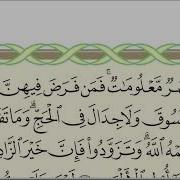 هُرٌ مَّعْلُومَٰتٌ ۚ فَمَن فَرَضَ فِيهِنَّ
سُوقَ وَلَا جِدَالَ فِى ٱلْحَجِّ ۗ وَمَا تَفْ
مْهُ ٱللَّهُ ۗ وَتَزَوَّدُوا۟ فَإِنَّ خَيْرَ ٱلزَّادِ